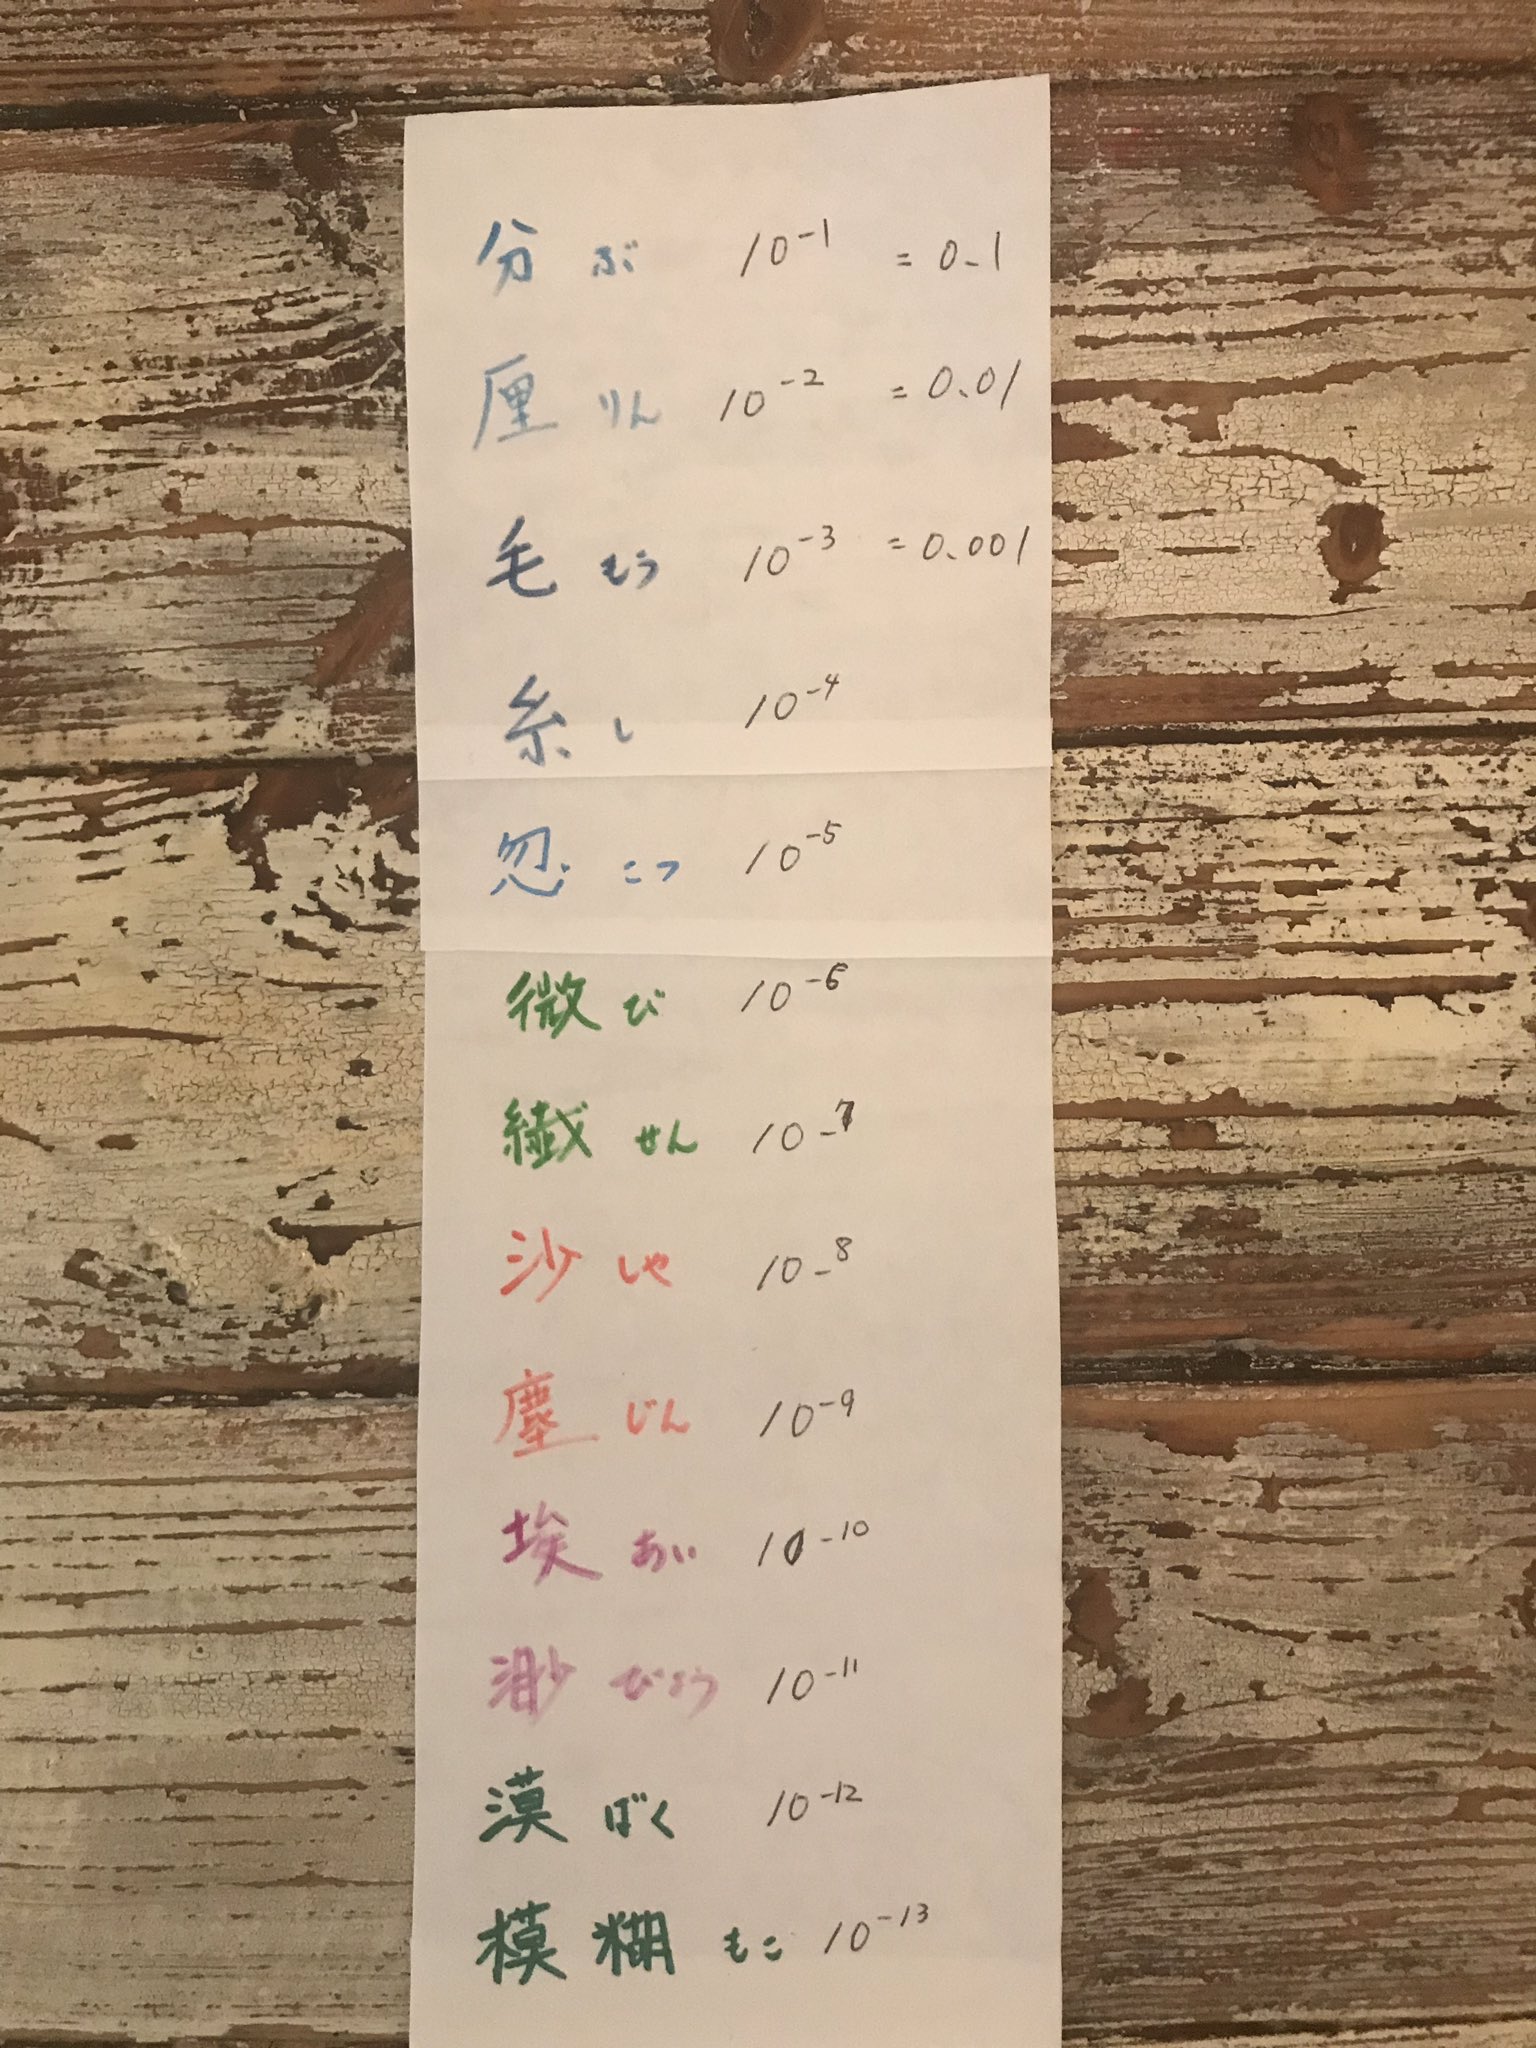 分 ぶ 10⁻¹ = 0.1
厘 りん 10⁻² = 0.01
毛 もう 10⁻³ = 0.001
糸 し 10⁻⁴
忽 こつ 10⁻⁵
微 び 10⁻⁶
繊 せん 10⁻⁷
沙 しゃ 10⁻⁸
塵 じん 10⁻⁹
埃 あい 10⁻¹⁰
渺 びょう 10⁻¹¹
漠 ばく 10⁻¹²
模糊 もこ 10⁻¹³